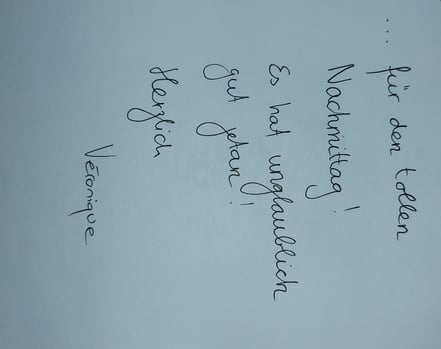 ... für den tollen
Nachmittag!
Es hat unglaublich
gut getan!
Herzlich
Véronique